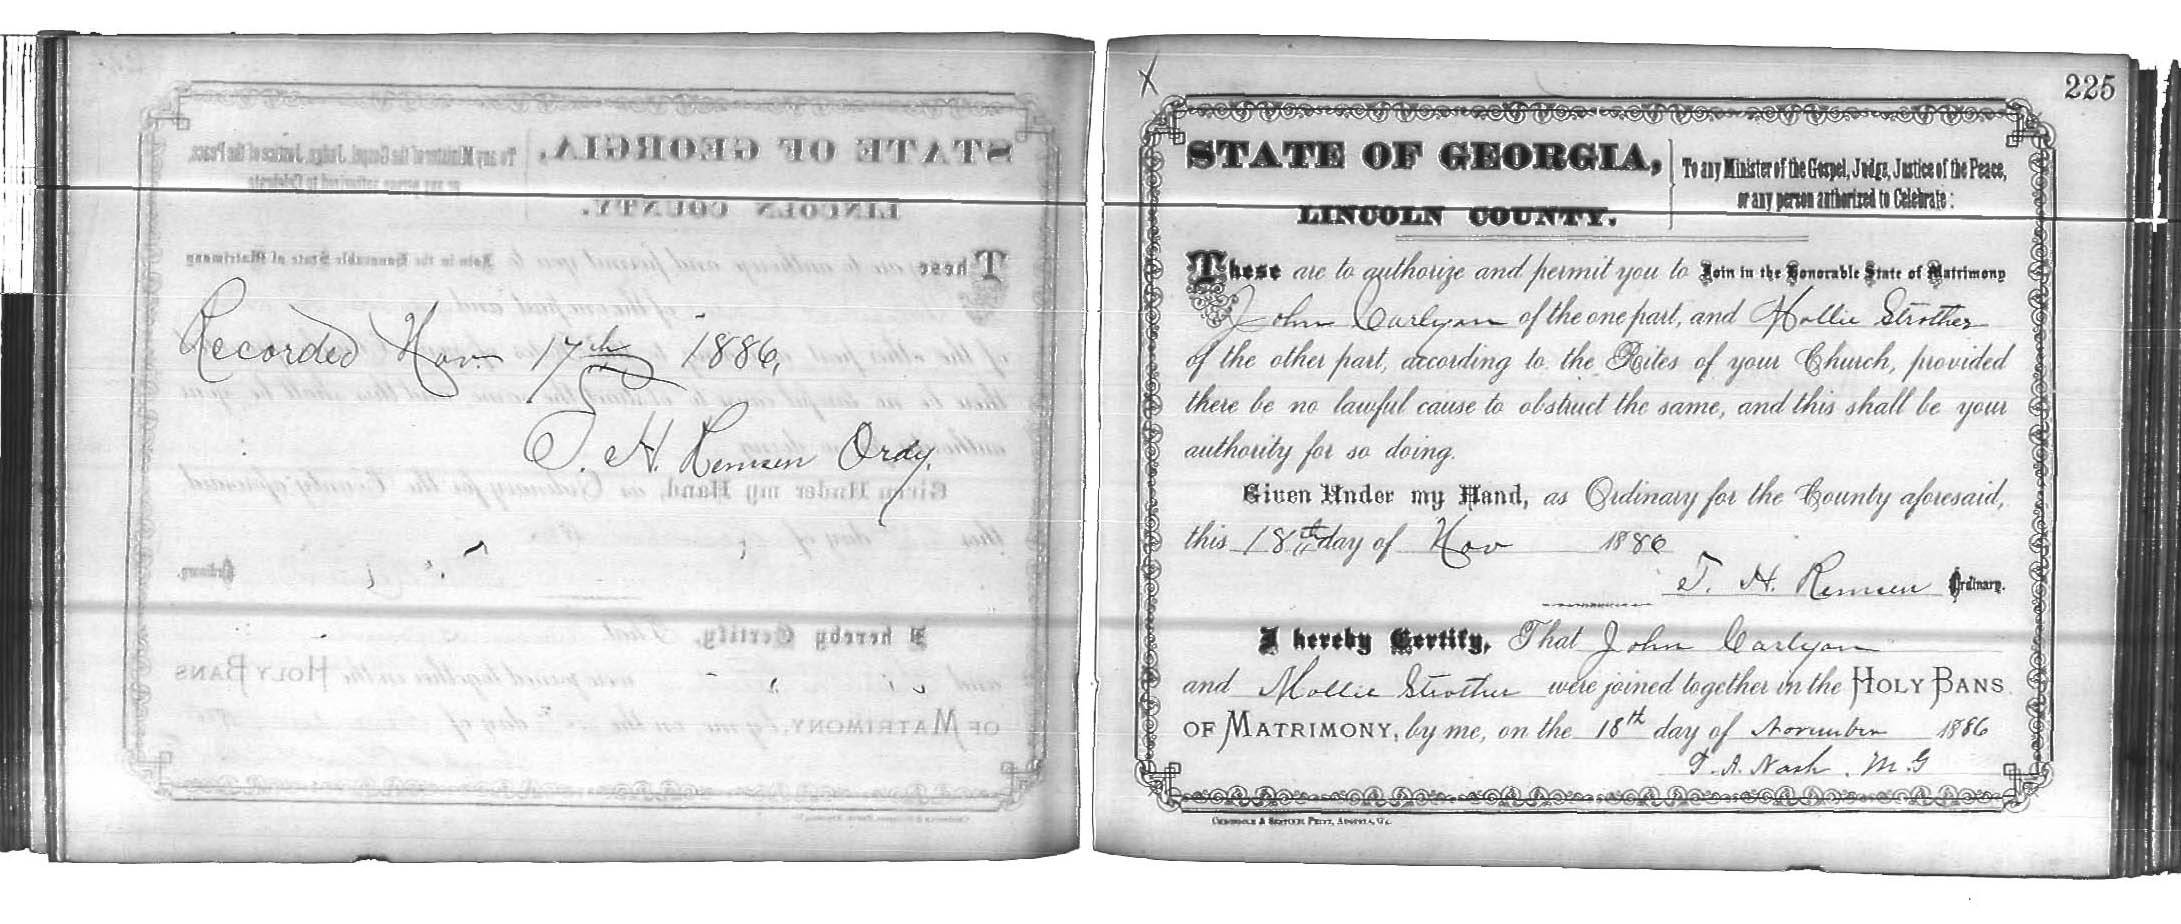 Recorded Nov. 17th 1886,
T. H. Remsen Ordy.
225
X
STATE OF GEORGIA,
LINCOLN COUNTY.
To any Minister of the Gospel, Judge, Justice of the Peace,
or any person authorized to Celebrate:
These are to authorize and permit you to Join in the Honorable State of Matrimony
John Carlyon of the one part, and Mollie Strother
of the other part, according to the Rites of your Church, provided
there be no lawful cause to obstruct the same, and this shall be your
authority for so doing.
Given Under my Hand, as Ordinary for the County aforesaid,
this 18th day of Nov 1886
T. H. Remsen Ordinary.
I hereby Certify, That John Carlyon
and Mollie Strother were joined together in the HOLY BANS
OF MATRIMONY, by me, on the 18th day of November 1886
T. A. Nash. M. G
CHRONICLE & SENTINEL PRINT, AUGUSTA, GA.